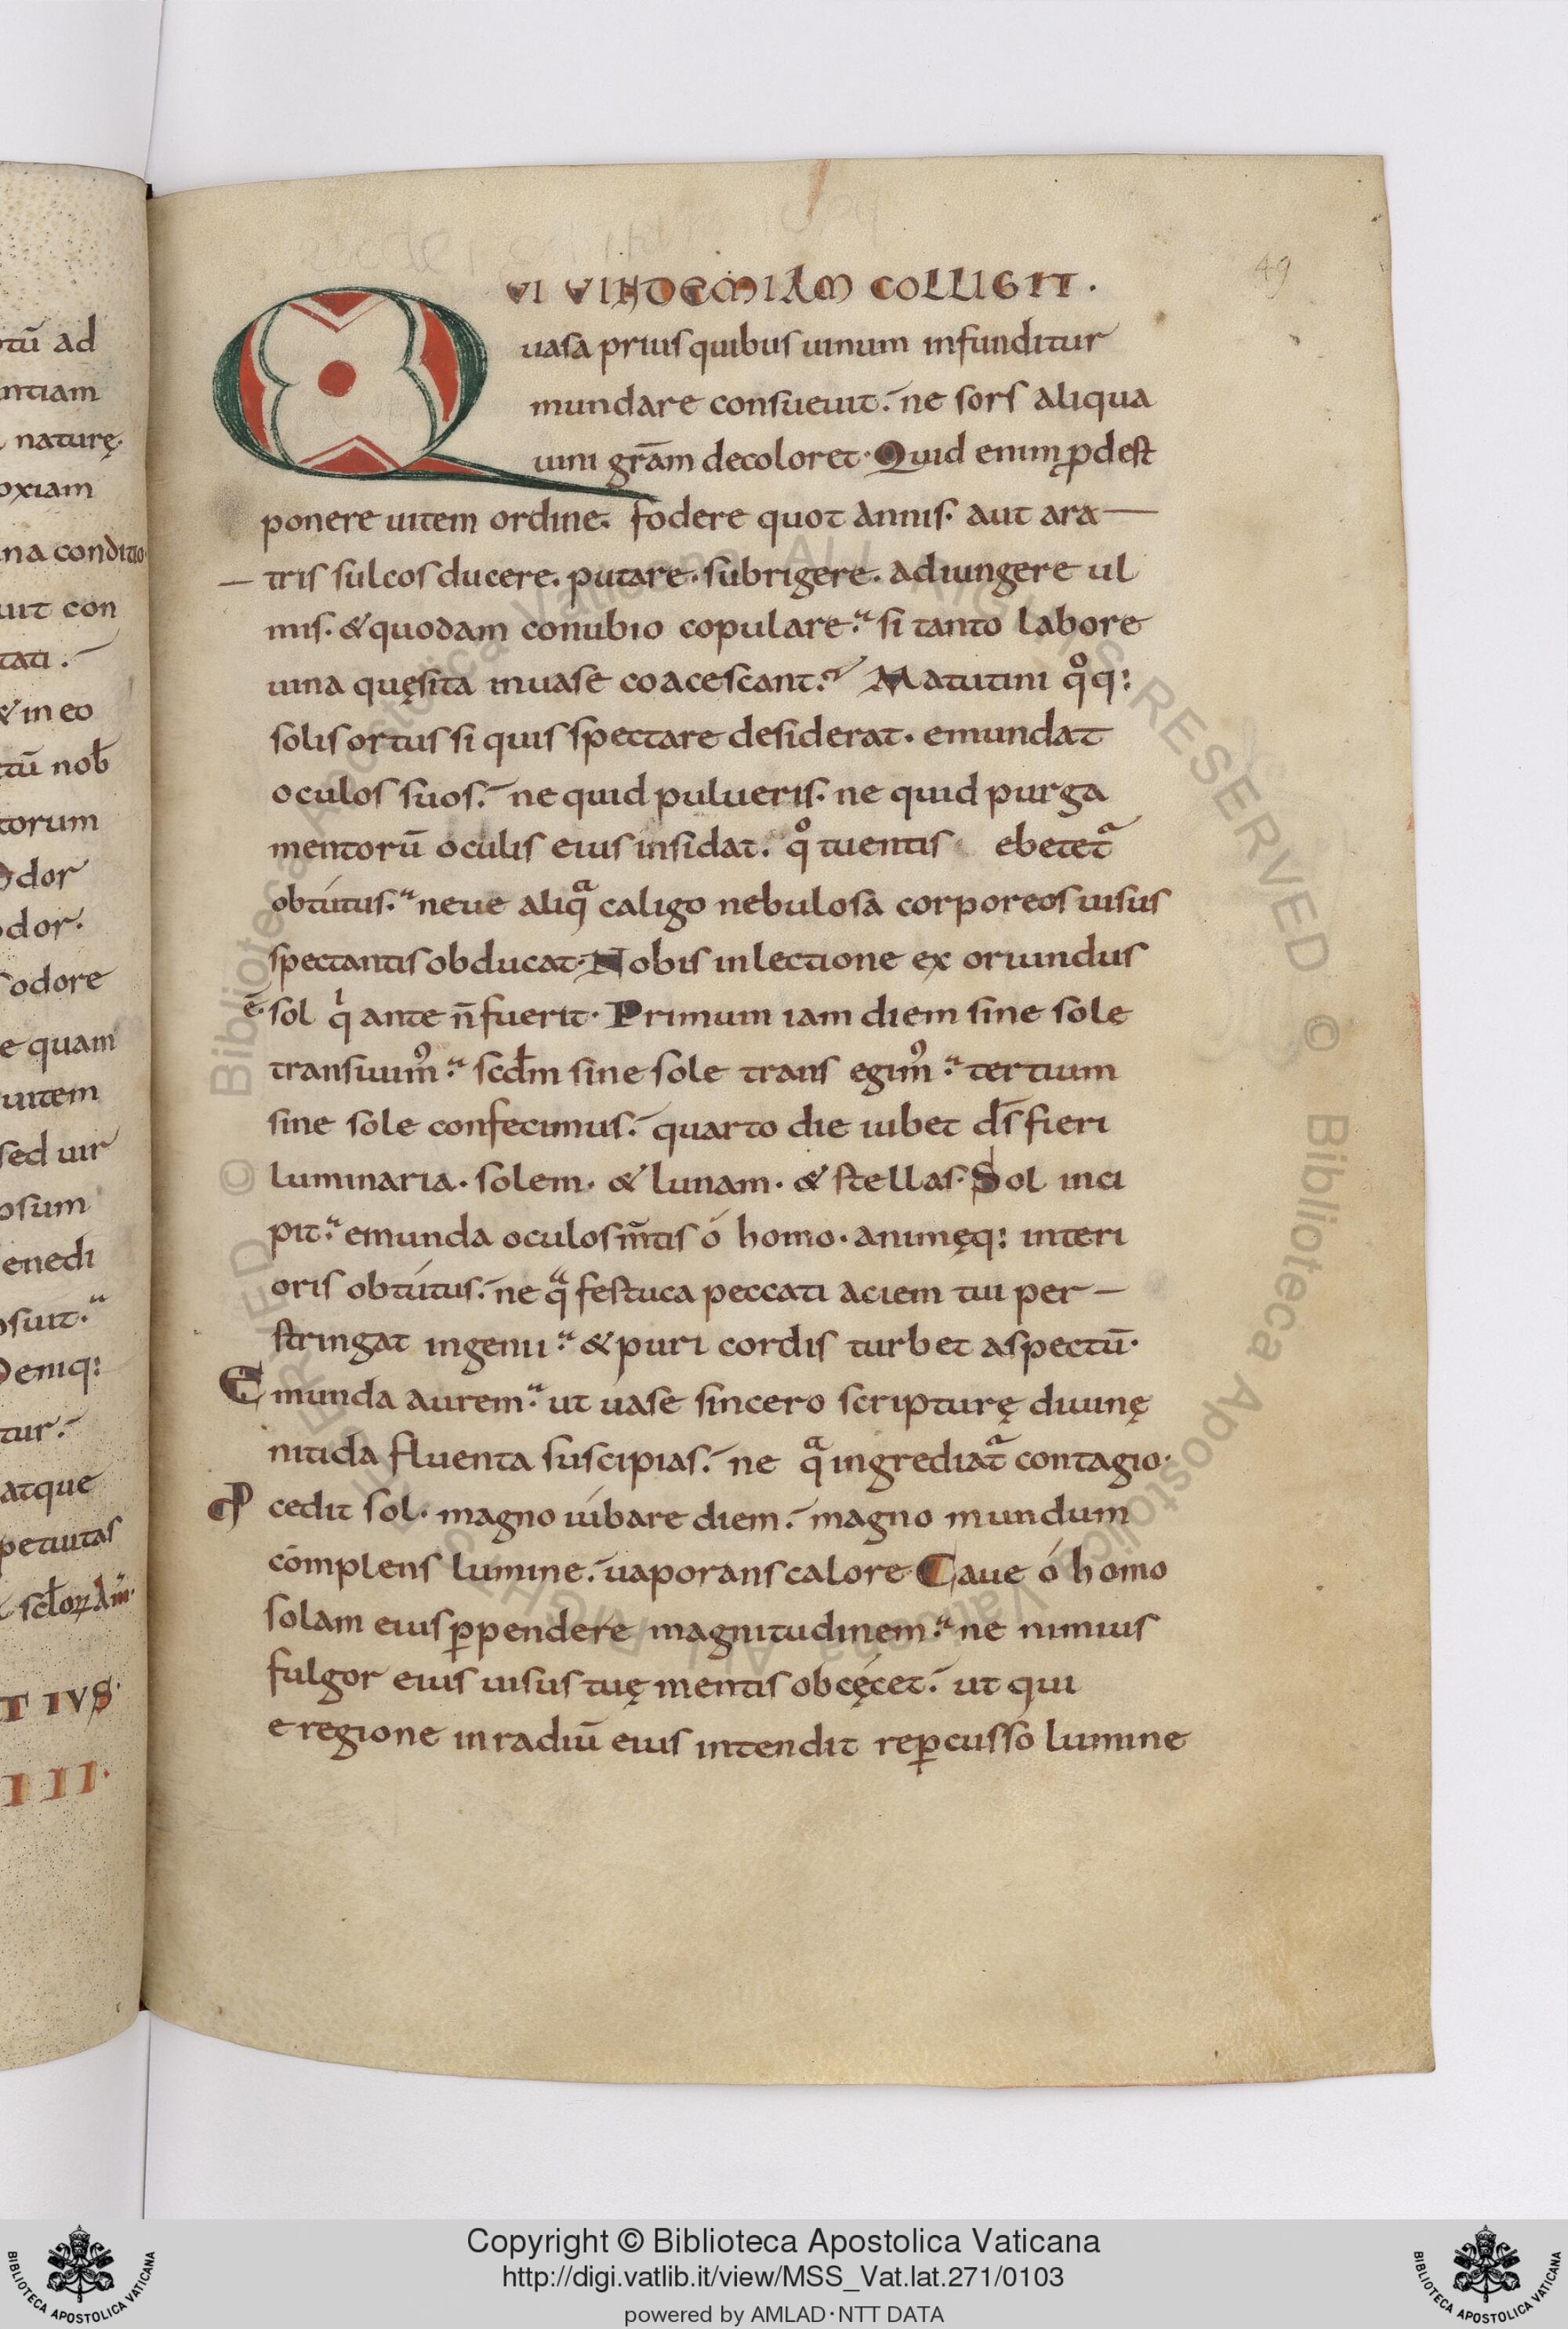 tū ad
ntiam
naturę.
oxiam
na conditio
uit con
tati.
& in eo
tū nob̄
torum
Odor
odor.
odore
e quam
uitem
sed uir
osum
enedi
osuit.
Deniq:
tur.
atque
petuitas
T IVS.
III.
49
QVI VINDEMIAM COLLIGIT.
uasa prius quibus uinum infunditur
mundare consueuit. ne sors aliqua
uini grām decoloret. Quid enim ꝓdest
ponere uitem ordine. fodere quot annis. aut ara—
—tris sulcos ducere. putare. subrigere. adiungere ul
mis. & quodam conubio copulare. si tanto labore
uina quęsita inuase coacescant. Matutini qͦq:
solis ortus si quis spectare desiderat. emundat
oculos suos. ne quid pulueris. ne quid purga
mentorū oculis eius insidat. qͦ tuentis ebetetᷓ
obtútus. neue aliqᷓ caligo nebulosa corporeos uisus
spectantis obducat. Nobis inlectione ex oriundus
ē. sol qͥ ante n̄ fuerit. Primum iam diem sine sole
transiuimꝰ. scd̄m sine sole trans egimꝰ. tertium
sine sole confecimus. quarto die iubet ds̄ fieri
luminaria. solem. & lunam. & stellas. Sol inci
pit. emunda oculos m̄tis ó homo. animęq: interi
oris obtútus. ne qᷓ festuca peccati aciem tui per—
stringat ingenii. & puri cordis turbet aspectū.
Emunda aurem. ut uase sincero scripturę diuinę
nitida fluenta suscipias. ne qᷓ ingrediatᷓ contagio.
Ꝓcedit sol. magno iúbare diem. magno mundum
complens lumine. uaporans calore. Caue ó homo
solam eius ꝑpendere magnitudinem. ne nimius
fulgor eius uisus tuę mentis obcęcet. ut qui
e regione in radiū eius intendit reꝑcusso lumine
© Biblioteca Apostolica Vaticana ALL RIGHTS RESERVED © Biblioteca Apostolica Vaticana ALL RIGHTS RESERVED
BIBLIOTECA APOSTOLICA VATICANA
Copyright © Biblioteca Apostolica Vaticana
http://digi.vatlib.it/view/MSS_Vat.lat.271/0103
powered by AMLAD·NTT DATA
BIBLIOTECA APOSTOLICA VATICANA